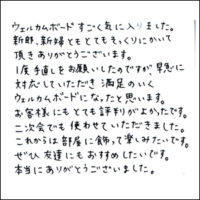 ウェルカムボードすごく気に入りました。
新郎、新婦ともとてもそっくりにかいて
頂きありがとうございます。
1度手直しをお願いしたのですが、早急に
対応していただき満足のいく
ウェルカムボードになったと思います。
お客様にもとても評判がよかったです。
二次会でも使わせていただきました。
これからは部屋に飾って楽しみたいです。
ぜひ友達にもおすすめしたいです。
本当にありがとうございました。